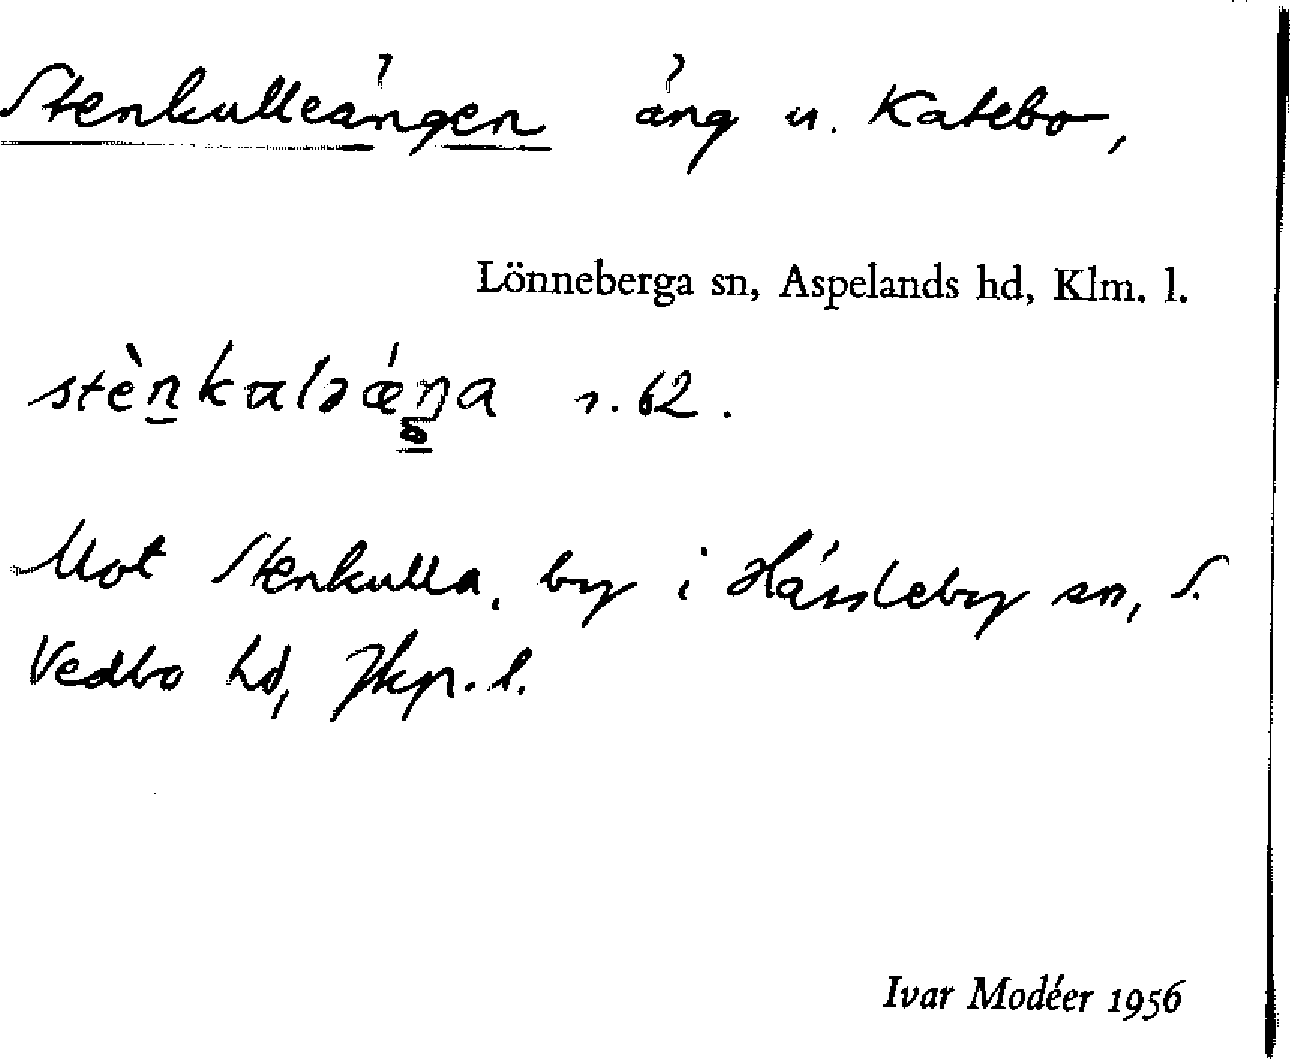 Stenkulleängen äng u. Katebo,
Lönneberga sn, Aspelands hd, Klm. l.
s. 62.
Mot Stenkulla, by i Hässleby sn, S.
Vedbo hd, Jkp. l.
Ivar Modéer 1956